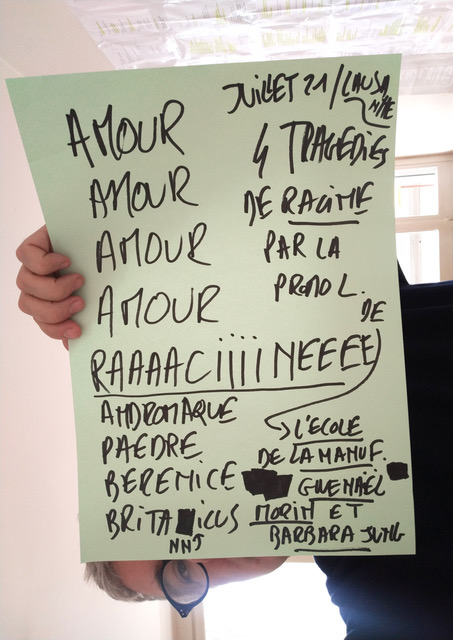 JUILLET 21/LAUSA
NNE
AMOUR
AMOUR
AMOUR
AMOUR
4 TRAGEDIES
DE RACINE
PAR LA
PROMO L.
DE
RAAAACiiiiNEEEE
ANDROMAQUE
PAEDRE
BERENICE
BRITA ICUS
NNJ
L'ÉCOLE
DE LA MANUF.
GWENAËL
MORIN ET
BARBARA JUNG